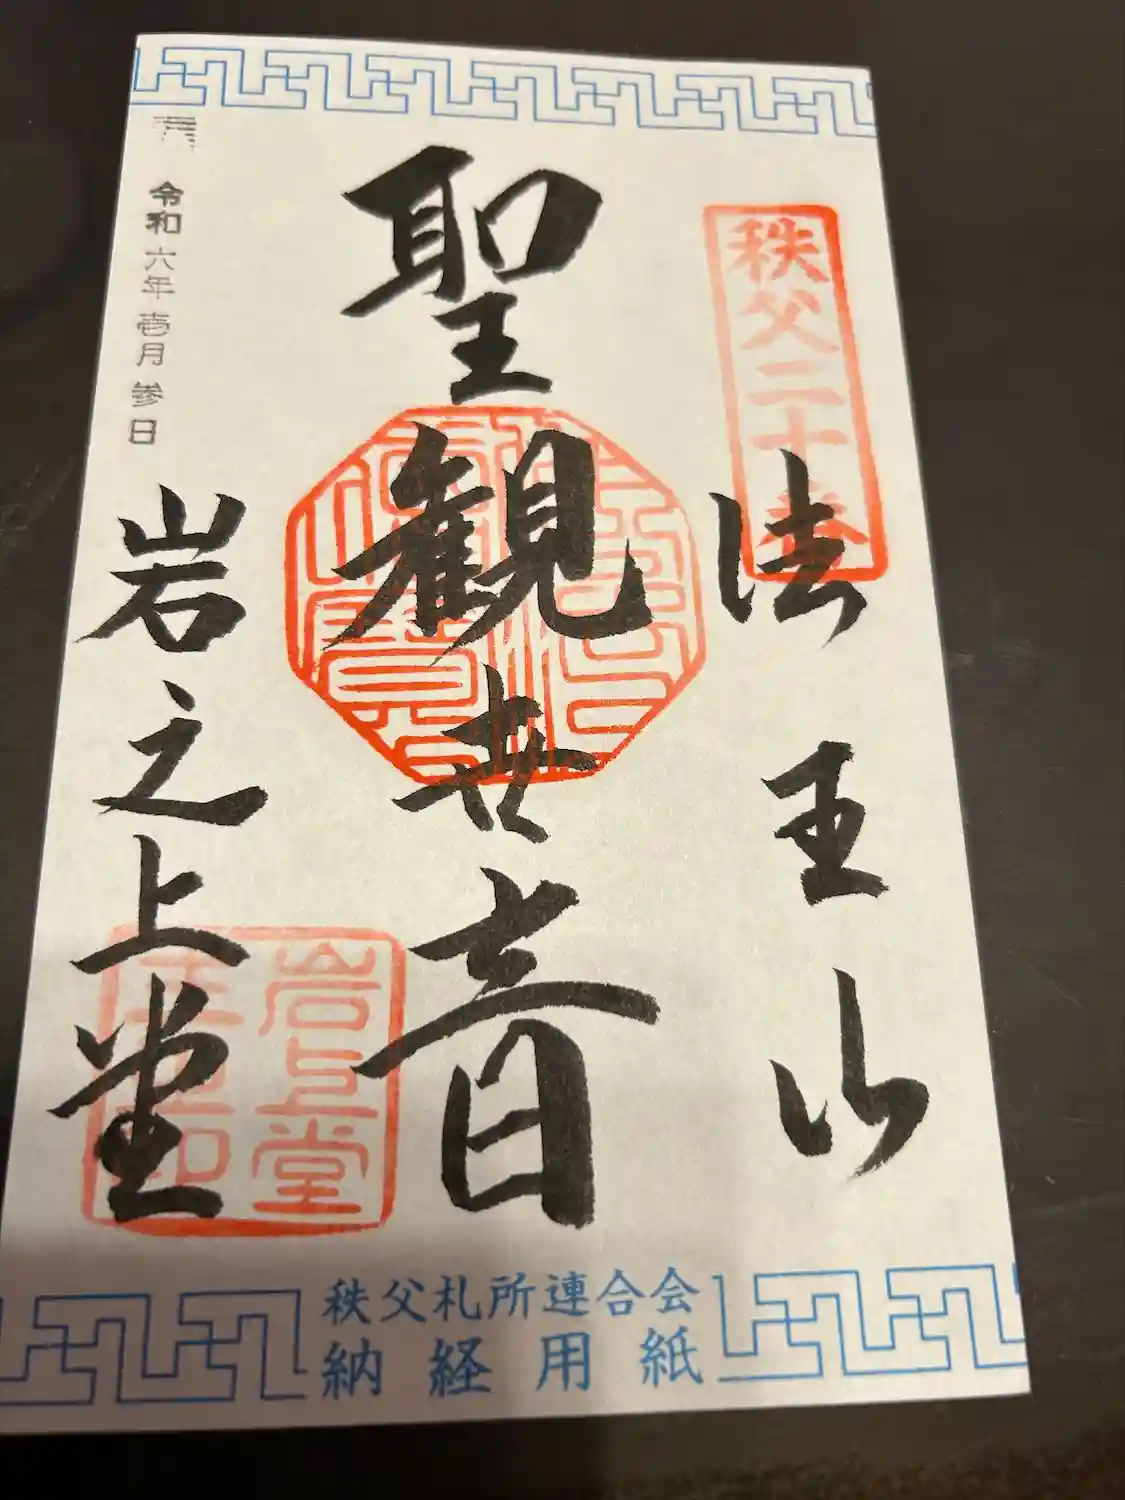 秩父二十番
法王山
聖観世音
令和六年壱月参日
岩之上堂
岩上堂
秩父札所連合会
納経用紙